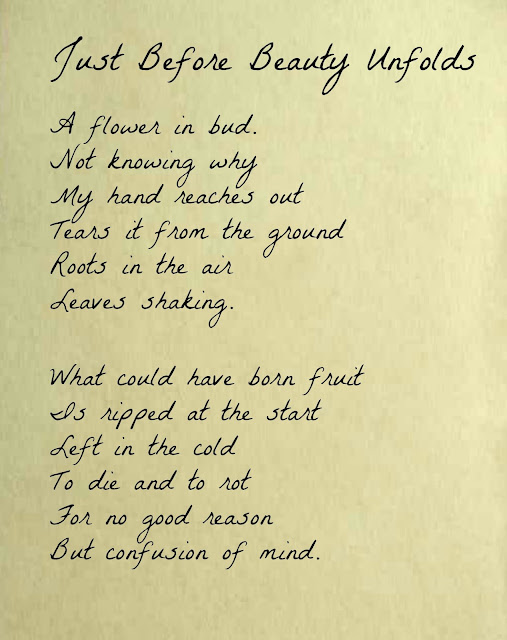 Just Before Beauty Unfolds
A flower in bud.
Not knowing why
My hand reaches out
Tears it from the ground
Roots in the air
Leaves shaking.
What could have born fruit
Is ripped at the start
Left in the cold
To die and to rot
For no good reason
But confusion of mind.